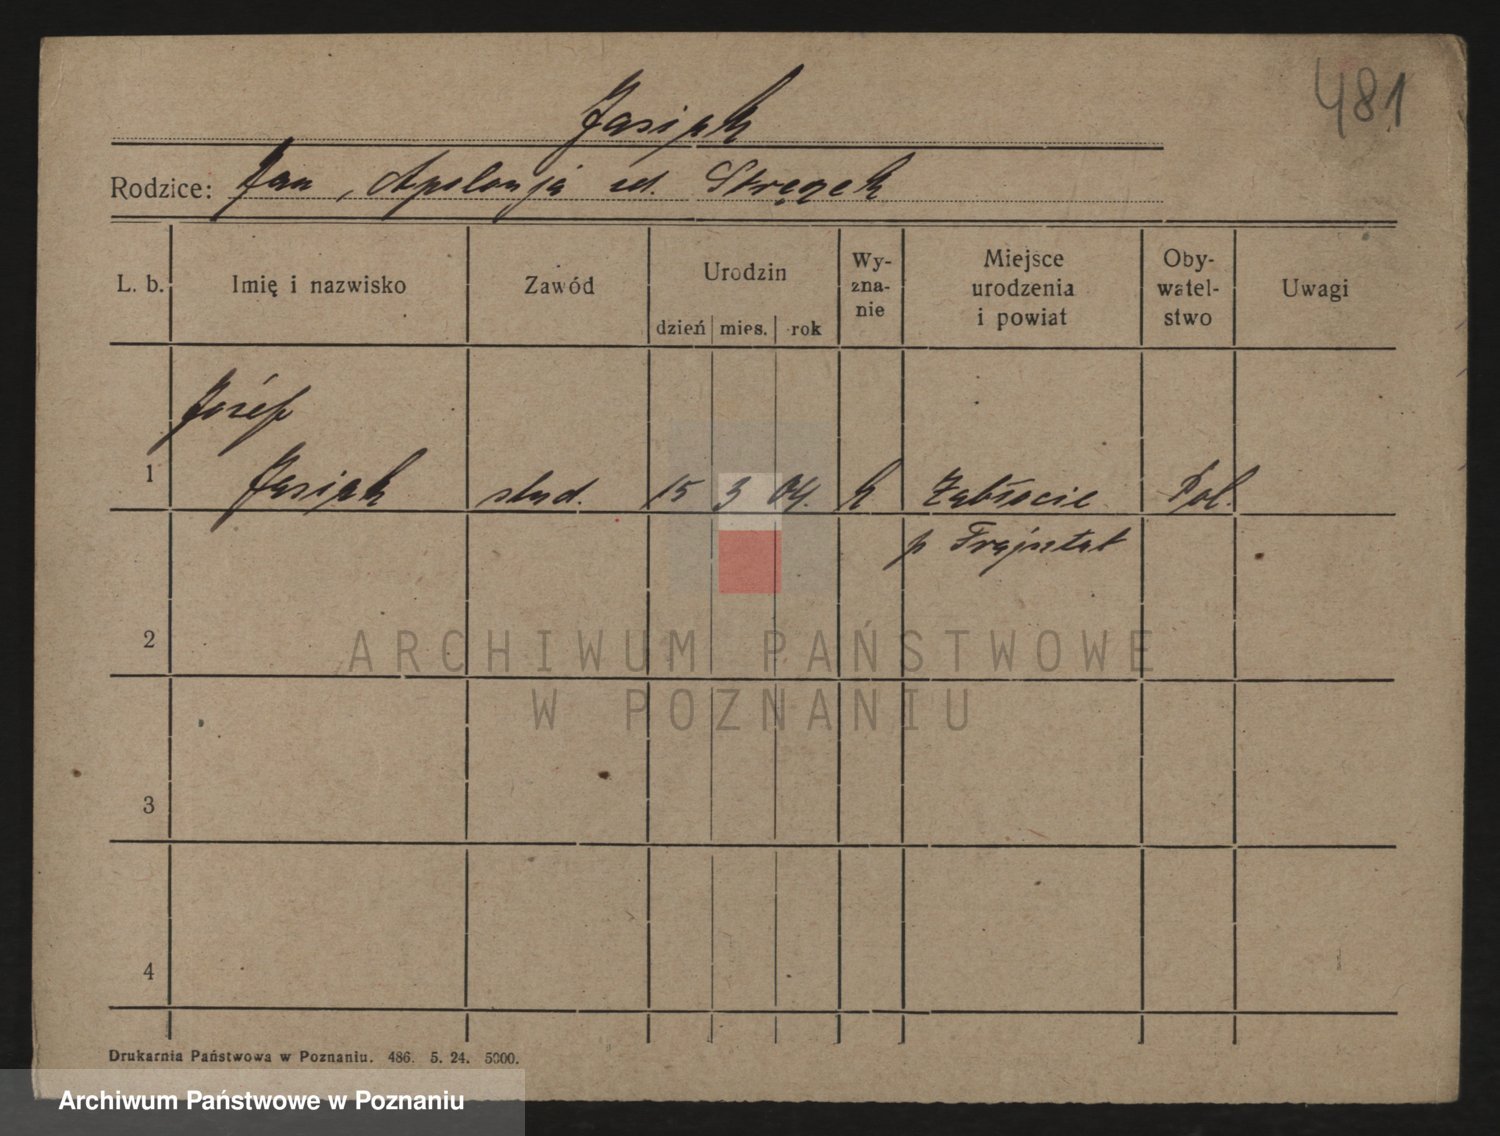 481
Jasiak
Rodzice: Jan, Apolonja zd. Stręgek
L. b. Imię i nazwisko Zawód Urodzin dzień mies. rok Wy-zna-nie Miejsce urodzenia i powiat Oby-watel-stwo Uwagi
Józef
1 Jasiak stud. 15 3 04. k Zabłocie Pol.
p Frajsztat
2
ARCHIWUM PAŃSTWOWE
W POZNANIU
3
4
Drukarnia Państwowa w Poznaniu. 486. 5. 24. 5000.
Archiwum Państwowe w Poznaniu